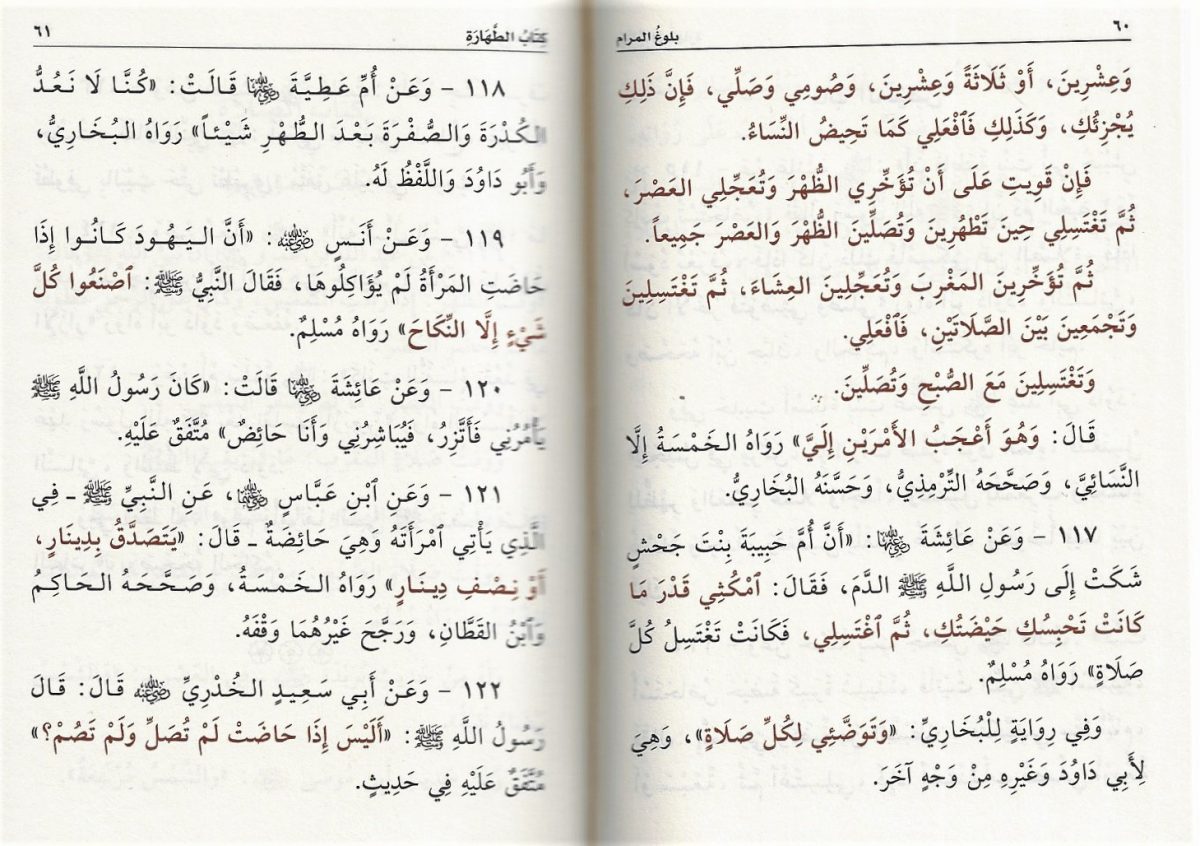 ٦٠
بلوغُ المرام
وَعِشْرِينَ، أَوْ ثَلَاثَةً وَعِشْرِينَ، وَصُومِي وَصَلِّي، فَإِنَّ ذَلِكِ
يُجْزِئُكِ، وَكَذَلِكِ فَٱفْعَلِي كَمَا تَحِيضُ النِّسَاءُ.
فَإِنْ قَوِيتِ عَلَى أَنْ تُؤَخِّرِي الظُّهْرَ وَتُعَجِّلِي العَصْرَ،
ثُمَّ تَغْتَسِلِي حِينَ تَطْهُرِينَ وَتُصَلِّينَ الظُّهْرَ وَالعَصْرَ جَمِيعاً.
ثُمَّ تُؤَخِّرِينَ المَغْرِبَ وَتُعَجِّلِينَ العِشَاءَ، ثُمَّ تَغْتَسِلِينَ
وَتَجْمَعِينَ بَيْنَ الصَّلَاتَيْنِ، فَٱفْعَلِي.
وَتَغْتَسِلِينَ مَعَ الصُّبْحِ وَتُصَلِّينَ.
قَالَ: وَهُوَ أَعْجَبُ الأَمْرَيْنِ إِلَيَّ» رَوَاهُ الخَمْسَةُ إِلَّا
النَّسَائِيَّ، وَصَحَّحَهُ التِّرْمِذِيُّ، وَحَسَّنَهُ البُخَارِيُّ.
١١٧ - وَعَنْ عَائِشَةَ رضي الله عنها: «أَنَّ أُمَّ حَبِيبَةَ بِنْتَ جَحْشٍ
شَكَتْ إِلَى رَسُولِ اللَّهِ ﷺ الدَّمَ، فَقَالَ: ٱمْكُثِي قَدْرَ مَا
كَانَتْ تَحْبِسُكِ حَيْضَتُكِ، ثُمَّ ٱغْتَسِلِي، فَكَانَتْ تَغْتَسِلُ كُلَّ
صَلَاةٍ» رَوَاهُ مُسْلِمٌ.
وَفِي رِوَايَةٍ لِلْبُخَارِيِّ: «وَتَوَضَّئِي لِكُلِّ صَلَاةٍ»، وَهِيَ
لِأَبِي دَاوُدَ وَغَيْرِهِ مِنْ وَجْهٍ آخَرَ.
كِتَابُ الطَّهَارَةِ
٦١
١١٨ - وَعَنْ أُمِّ عَطِيَّةَ رضي الله عنها قَالَتْ: «كُنَّا لَا نَعُدُّ
الكُدْرَةَ وَالصُّفْرَةَ بَعْدَ الطُّهْرِ شَيْئاً» رَوَاهُ البُخَارِيُّ،
وَأَبُو دَاوُدَ وَاللَّفْظُ لَهُ.
١١٩ - وَعَنْ أَنَسٍ رضي الله عنه: «أَنَّ اليَهُودَ كَانُوا إِذَا
حَاضَتِ المَرْأَةُ لَمْ يُؤَاكِلُوهَا، فَقَالَ النَّبِيُّ ﷺ: ٱصْنَعُوا كُلَّ
شَيْءٍ إِلَّا النِّكَاحَ» رَوَاهُ مُسْلِمٌ.
١٢٠ - وَعَنْ عَائِشَةَ رضي الله عنها قَالَتْ: «كَانَ رَسُولُ اللَّهِ ﷺ
يَأْمُرُنِي فَأَتَّزِرُ، فَيُبَاشِرُنِي وَأَنَا حَائِضٌ» مُتَّفَقٌ عَلَيْهِ.
١٢١ - وَعَنِ ٱبْنِ عَبَّاسٍ رضي الله عنهما، عَنِ النَّبِيِّ ﷺ - فِي
الَّذِي يَأْتِي ٱمْرَأَتَهُ وَهِيَ حَائِضَةٌ - قَالَ: «يَتَصَدَّقُ بِدِينَارٍ،
أَوْ نِصْفِ دِينَارٍ» رَوَاهُ الخَمْسَةُ، وَصَحَّحَهُ الحَاكِمُ
وَٱبْنُ القَطَّانِ، وَرَجَّحَ غَيْرُهُمَا وَقْفَهُ.
١٢٢ - وَعَنْ أَبِي سَعِيدٍ الخُدْرِيِّ رضي الله عنه قَالَ: قَالَ
رَسُولُ اللَّهِ ﷺ: «أَلَيْسَ إِذَا حَاضَتْ لَمْ تُصَلِّ وَلَمْ تَصُمْ؟»
مُتَّفَقٌ عَلَيْهِ فِي حَدِيثٍ.